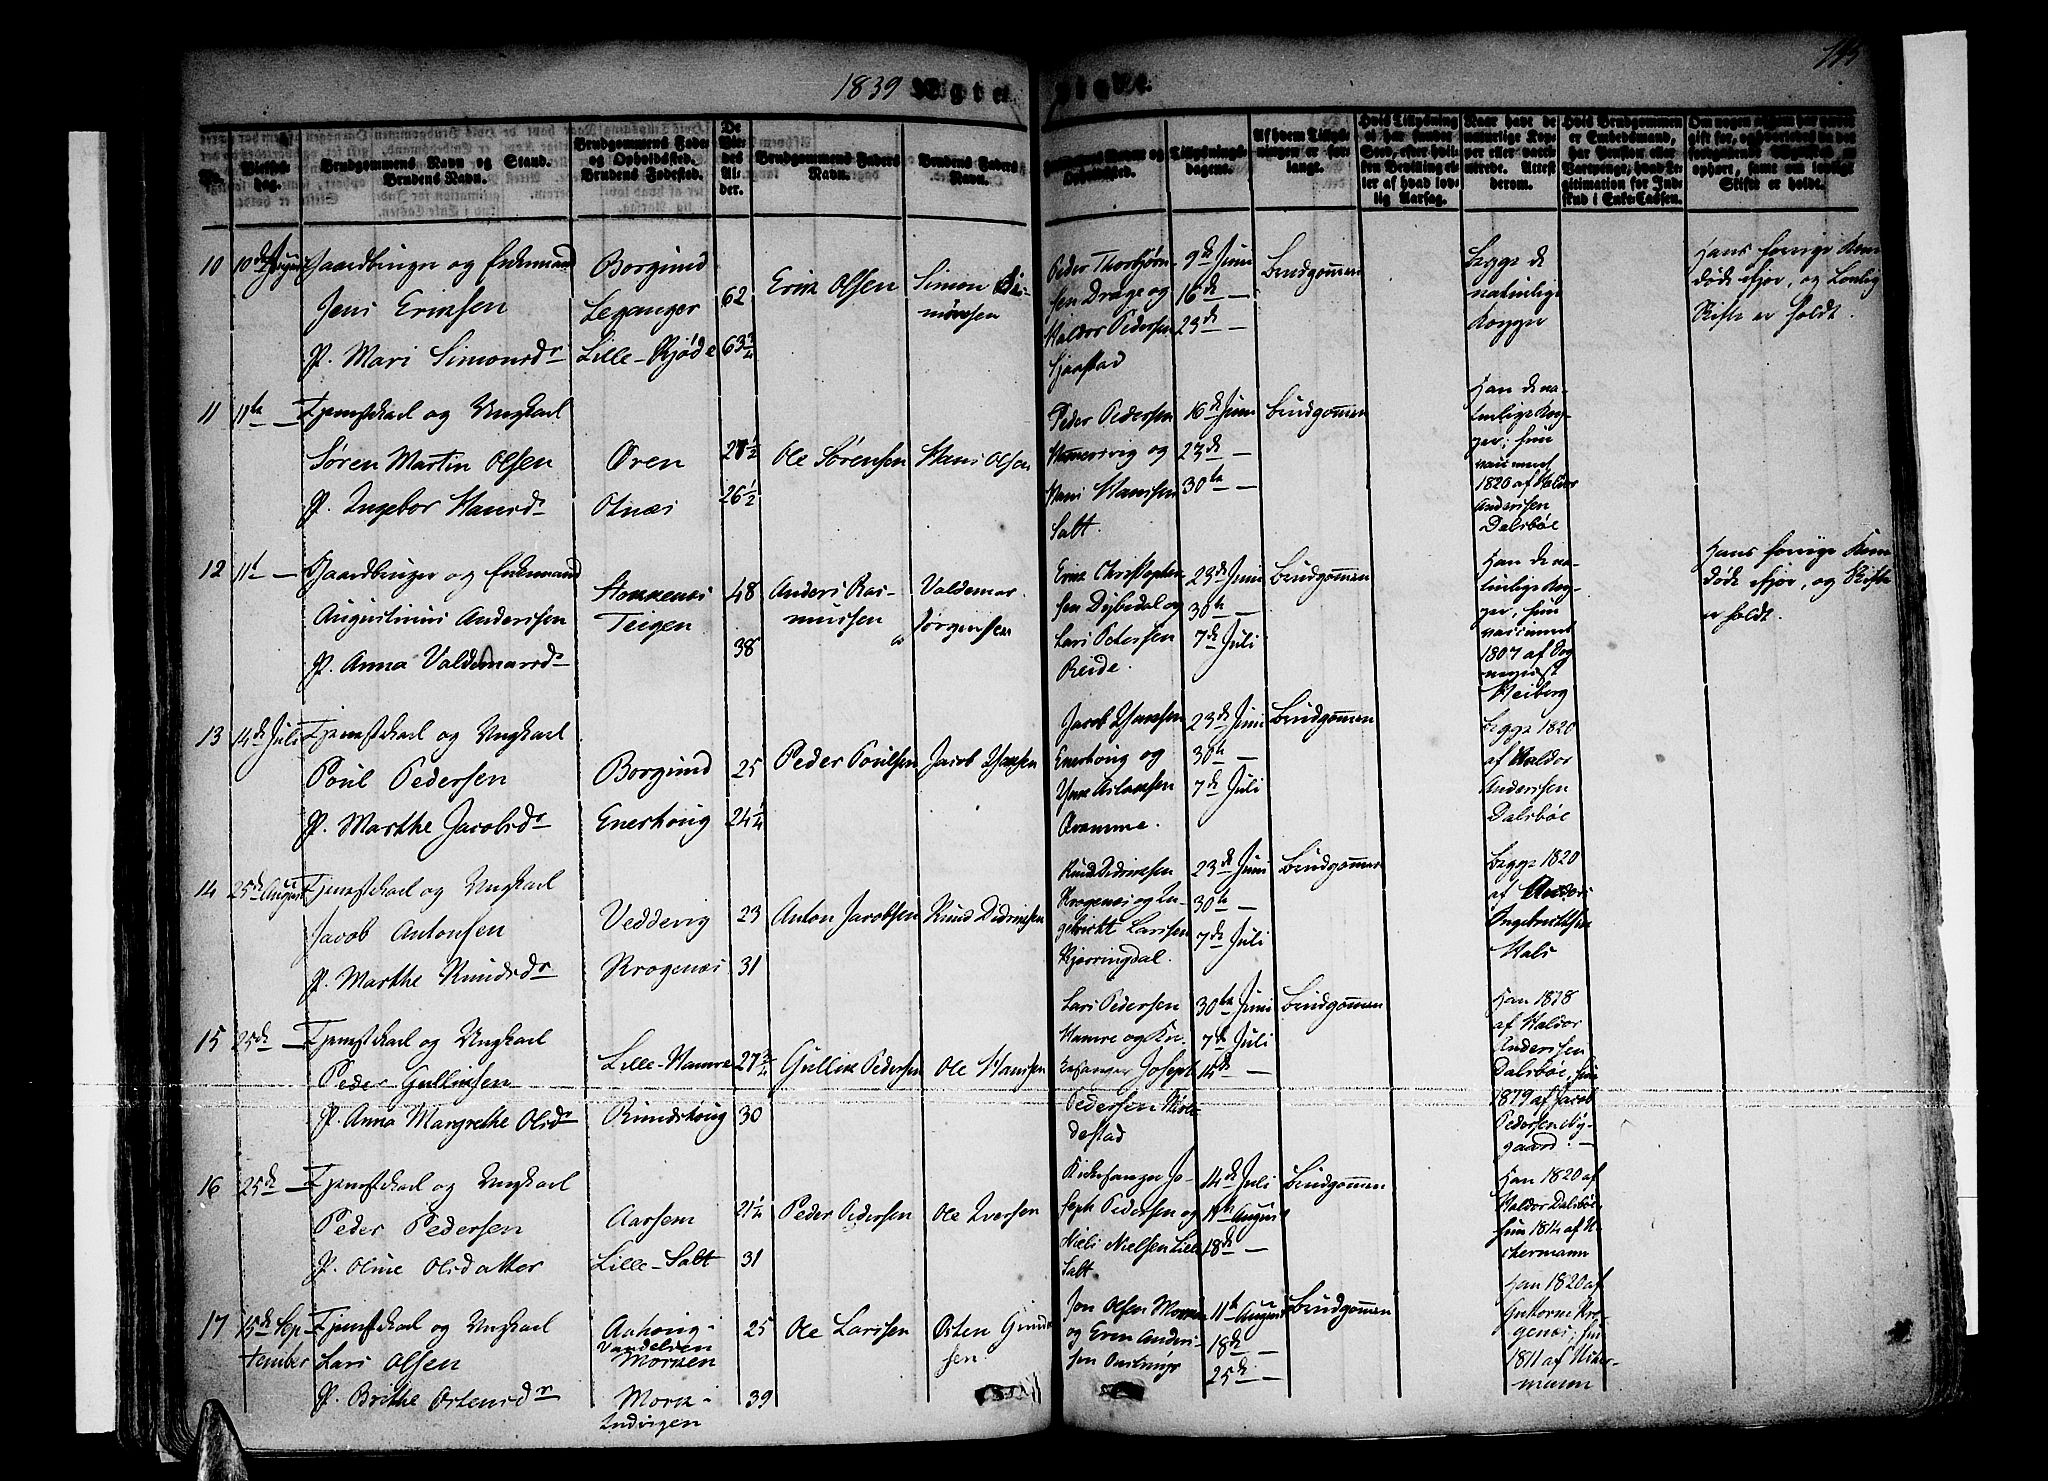 1839 Ægteviede. 115
No.
Vielses-Dag.
Brudgommens Navn og Stand.
Brudens Navn.
Brudgommens Føde-
og Opholdssted.
Brudens Fødested.
De
Vie-
des
Al-
der.
Brudgommens Faders
Navn.
Brudens Faders
Navn.
Forlovernes Navne og
Opholdssted.
Tillysnings-
dagene.
Af hvem Tillys-
ningen er for-
langt.
Hvis Tillysning
ei har fundet
Sted, efter hvil-
ken Bevilling el-
ler af hvad lov-
lig Aarsag.
Naar have de
naturlige Kop-
per eller vaccineret
Attest
derom.
Hvis Brudgommen
er Embedsmand,
har Pension eller
Vartpenge, hvad Le-
gitimation for Ind-
skud i Enke-Cassen.
10 Gaardbruger og Enkemand
Jens Eriksen
P. Mari Simonsdr
Borgund
Leganger
Lille-Kjøde
62
63 3/4
Erik Olsen
Simon Si-
monsen
Peder Thorbjørn-
sen Drage og
Haldor Pedersen
Sjaastad
9de Juni
16de —
23de —
Brudgommen
Begge de
naturlige
Kopper
Hans forrige Kone
døde ifjor, og Lovlig
Skifte er holdt.
11 11te — Tjenestekarl og Ungkarl
Søren Martin Olsen
P. Ingebor Hansdr
Øren
Otnæs
27 1/2
26 1/2
Ole Sørensen
Hans Olsen
Peder Pedersen
og
Hans Hanssen
Salt.
16de Juni
23de —
30te —
Brudgommen
Han de na-
turlige Kop-
per; hun
vaccineret
1820 af Haldor
Anderssen
Dalsbøe
12 11te — Gaardbruger og Enkemand
Augustinus Anderssen
P. Anna Valdemarsdr
Stokkenæs
Teigen
48
38
Anders Ras-
mussen
Valdemar
Jørgenssen
Erik Christopher-
sen Dybedal og
Lars Petersen
Reide.
23de Juni
30te —
7de Juli
Brudgommen
Han de na-
turlige Kop-
per, hun
vaccineret
1807 af Sog-
nepræst
Heiberg
Hans forrige Kone
døde ifjor, og Skifte
er holdt.
13 14de Juli Tjenestekarl og Ungkarl
Poul Pedersen
P. Marthe Jacobsdr
Borgund
Enerhoug
25
24 1/4
Peder Poulsen
Jacob Hansen
Jacob Hansen
Enerhoug og
Aslaksen
Qvamme.
23de Juni
30te —
7de Juli
Brudgommen
Begge 1820
af Haldor
Anderssen
Dalsbøe
14 25de August Tjenestekarl og Ungkarl
Jacob Antonsen
P. Marthe Knudsdr
Veddevig
Krogenæs
23
31
Anton Jacobsen
Knud Didriksen
Knud Didriksen
Krogenæs og In-
gebrigt Larssen
Kjerringdal.
23de Juni
30te —
7de Juli
Brudgommen
Begge 1820
af Anders
Ingebrichtsen
Hals
15 25de — Tjenestekarl og Ungkarl
Peder Gulliksen
P. Anna Margrethe Olsdr
Lille-Hamre
Rundehoug
27 3/4
30
Gullik Pedersen
Ole Hanssen
Lars Pedersen
Hamre og Kir-
kesanger Joseph
Pedersen
30te Juni
7de Juli
14de —
Brudgommen
Han 1818
af Haldor
Anderssen
Dalsbøe, hun
1819 af Jacob
Pedersen Ny-
gaard. —
16 25de — Tjenestekarl og Ungkarl
Peder Pedersen
P. Oline Olsdatter
Aarsem
Lille-Salt
21 1/4
31
Peder Pedersen
Ole Iversen
Kirkesanger Jo-
seph Pedersen og
Niels Nielsen Lille
Salt.
14de Juli
11te August
18de —
Brudgommen
Han 1820 af
Haldor Dalsbøe,
hun 1814 af U-
chermann
17 15de Sep-
tember
Tjenestekarl og Ungkarl
Lars Olsen
P. Brithe Østensdr
Aahoug-
Vandelven
Morken
Mork-
Indvigen
25
39
Ole Larssen
Østen
sen
Jon Olsen Morken
og Even Anders-
sen
11te August
18de —
25de —
Brudgommen
Han 1820 af
Guttorm Kro-
genæs; hun
1811 af Ucher-
mann